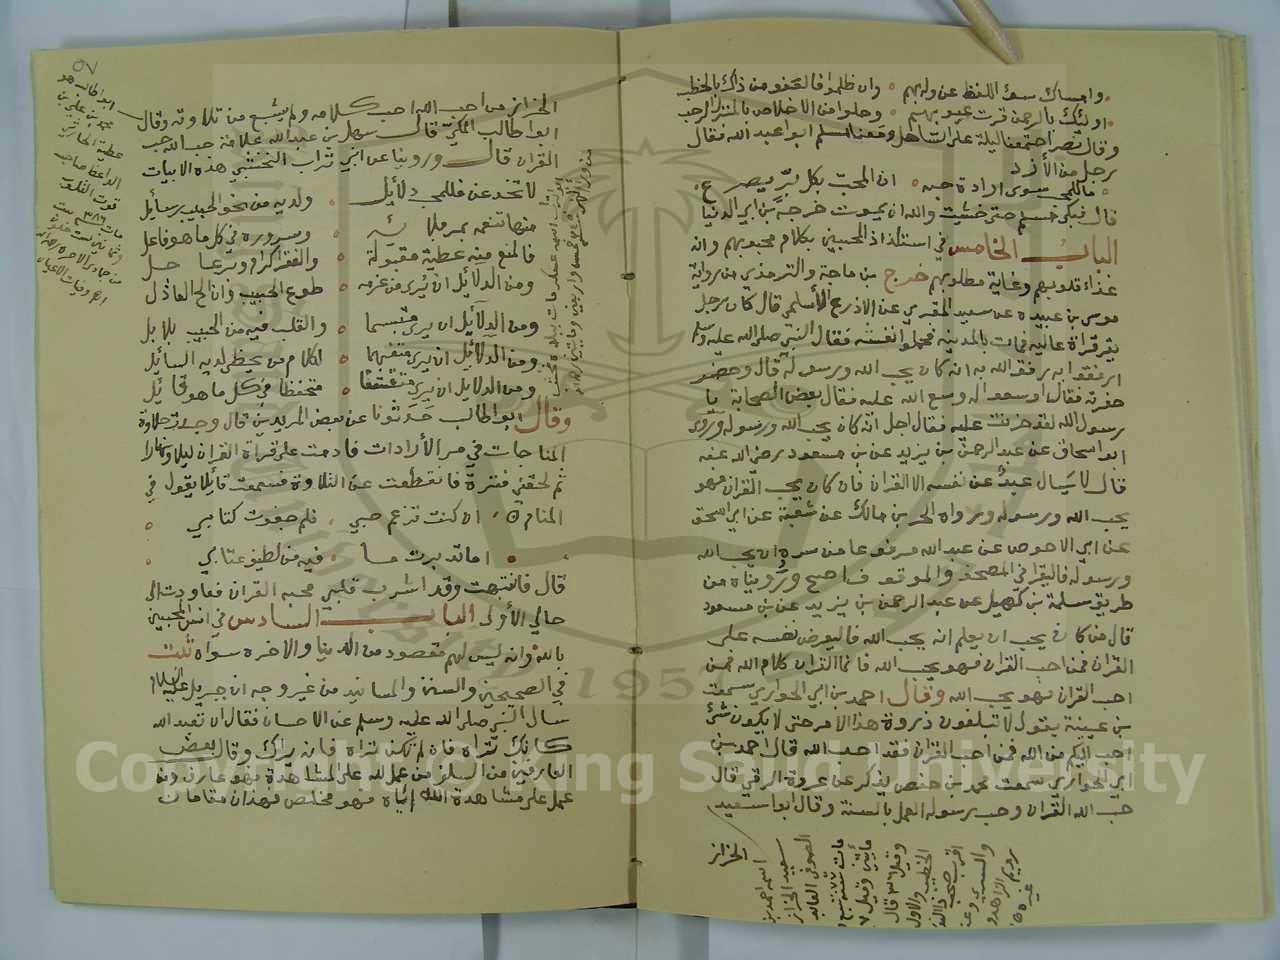 وامساك سوء اللفظ عن ولهم وان ظلموا فالعفو من ذاك بالحظ
اولئك بالرحمن قرت عيونهم وحلوا من الاخلاص بالمنزل الرحب
وقال نصر اجتمعنا ليلة على الساحل ومعنا مسلم ابو عبد الله فقال
رجل من الأزد
ما للمحب سوى ارادة حبه ان المحب بكل بر يصرع
قال فبكى مسلم حتى خشيت والله ان يموت خرجه بن ابي الدنيا
الباب الخامس في استلذاذ المحبين بكلام محبوبهم وانه
غذاء قلوبهم وغاية مطلوبهم خرج بن ماجة والترمذي من رواية
موسى بن عبيدة عن سعيد المقبري عن الادرع الأسلمي قال كان رجل
يقرأ قراة عاليه فمات بالمدينه فحملوا نعشه فقال النبي صلى الله عليه وسلم
ارفقوا به رفق الله به انه كان يحب الله ورسوله قال وحضر
حفرته فقال اوسعوا له وسع الله عليه فقال بعض الصحابة يا
رسول الله لقد حزنت عليه فقال اجل انه كان يحب الله ورسوله وروى
ابو اسحاق عن عبد الرحمن بن يزيد عن بن مسعود رضي الله عنه
قال لا يسال عبد عن نفسه الا القران فان كان يحب القران فهو
يحب الله ورسوله ورواه الحر بن مالك عن شعبة عن ابي اسحق
عن ابي الاحوص عن عبد الله مرفوعا من سره ان يحب الله
ورسوله فاليقرا في المصحف والموقوف اصح ورويناه من
طريق سلمة بن كهيل عن عبد الرحمن بن يزيد عن بن مسعود
قال من كان يحب ان يعلم انه يحب الله فاليعرض نفسه على
القران فمن احب القران فهو يحب الله فانما القران كلام الله فمن
احب القران فهو يحب الله وقال احمد بن ابي الحواري سمعت
بن عيينة يقول لا تبلغون ذروة هذا الامر حتى لا يكون شئ
احب اليكم من الله فمن احب القران فقد احب الله قال احمد بن
ابي الحواري سمعت محمد بن حفص يذكر عن عروة الرقي قال
حب الله القران وحب رسوله العمل بالسنة وقال ابو سعيد
الخزاز
اسمه احمد بن
سعيد الخزاز
الصوفي العابد
٥٧
ابو طالب هو
محمد بن علي بن
عطية الحارثي
الواعظ صاحب
قوت القلوب
الخزاز من احب الله احب كلامه ولم يشبع من تلاوته وقال
ابو طالب المكي قال سهل بن عبد الله علامة حب الله حب
القران قال وروينا عن ابي تراب النخشبي هذه الابيات
لا تخدعن فللمحب دلائل ولديه من نحو الحبيب رسائل
منها تنعمه بمر بلائه وسروره في كل ما هو فاعل
فالمنع منه عطية مقبولة والفقر اكرام وبر عاجل
ومن الدلائل ان يرى من عزمه طوع الحبيب وان الح العاذل
ومن الدلائل ان يرى متبسما والقلب فيه من الحبيب بلابل
ومن الدلائل ان يرى متفهما لكلام من يحظى لديه السائل
ومن الدلائل ان يرى متقشفا متحفظا في كل ما هو قائل
وقال ابو طالب حدثونا عن بعض المريدين قال وجدت حلاوة
المناجات في سر الأرادات فادمت على قراة القران ليلا ونهارا
ثم لحقتني فترة فانقطعت عن التلاوة فسمعت قائلا يقول في
المنام ان كنت تزعم حبي فلم جفوت كتابي
اما تدبرت ما فيه من لطيف عتابي
قال فانتبهت وقد اشرب قلبي محبه القران فعاودت الى
حالي الأولى الباب السادس في انس المحبين
بالله وانه ليس لهم مقصود من الدنيا والاخره سواه ثبت
في الصحيحين والسنن والمسانيد من غير وجه ان جبريل عليه السلام
سال النبي صلى الله عليه وسلم عن الاحسان فقال ان تعبد الله
كانك تراه فان لم تكن تراه فانه يراك وقال بعض
العارفين من السلف من عمل لله على المشاهدة فهو عارف ومن
عمل على مشاهدة الله اياه فهو مخلص فهذان مقامان
Copyright © King Saud University
1957